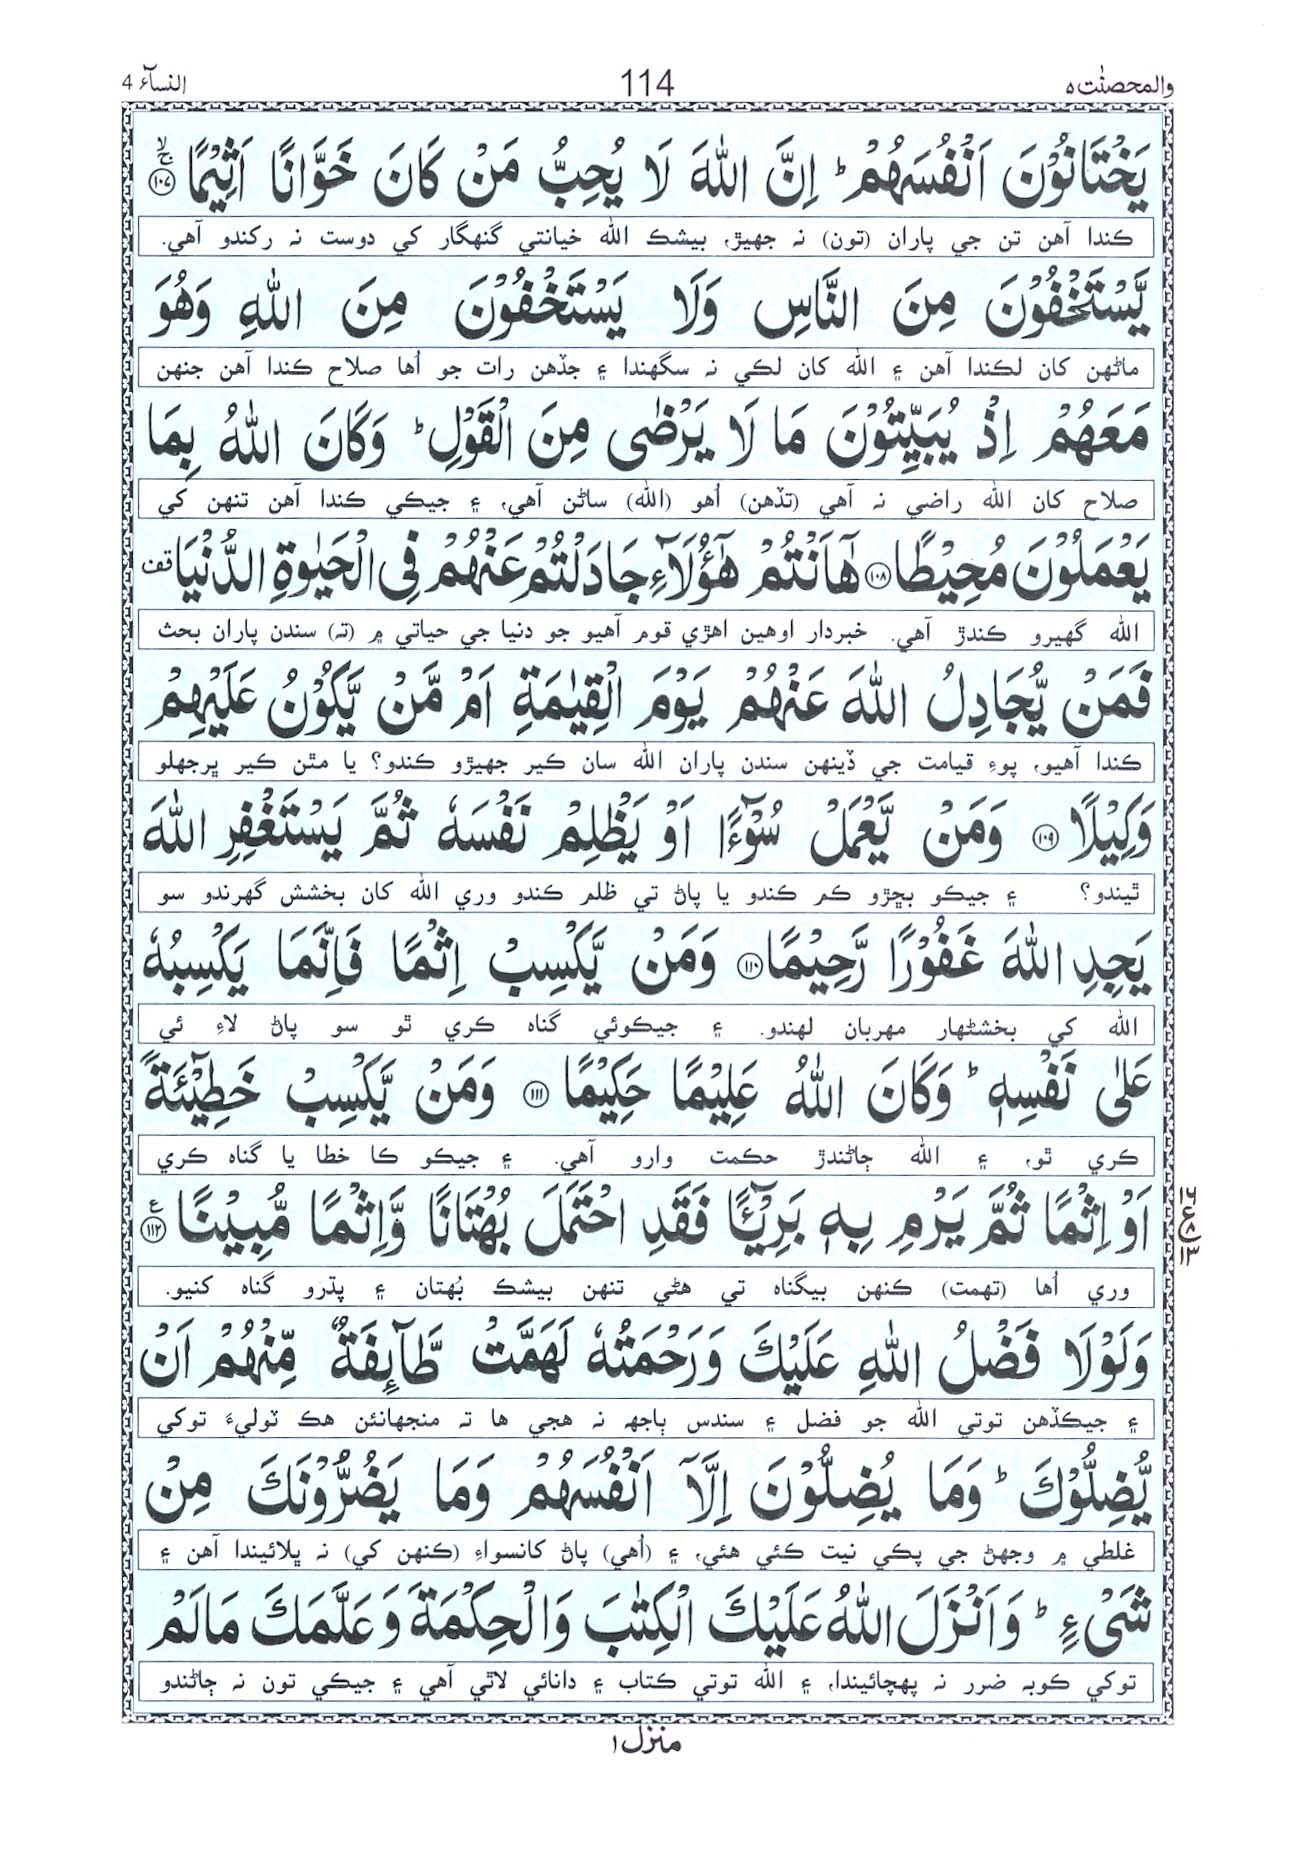 والمحصنٰت ٥
114
النسآء 4
يَخْتَانُوْنَ اَنْفُسَهُمْ ؕ اِنَّ اللّٰهَ لَا يُحِبُّ مَنْ كَانَ خَوَّانًا اَثِيْمًا ۙۚ ﴿۱۰۷﴾
ڪندا آهن تن جي پاران (تون) نہ جهيڙ، بيشڪ الله خيانتي گنهگار کي دوست نہ رکندو آهي.
يَّسْتَخْفُوْنَ مِنَ النَّاسِ وَلَا يَسْتَخْفُوْنَ مِنَ اللّٰهِ وَهُوَ
ماڻهن کان لڪندا آهن ۽ الله کان لڪي نہ سگهندا ۽ جڏهن رات جو اُها صلاح ڪندا آهن جنهن
مَعَهُمْ اِذْ يُبَيِّتُوْنَ مَا لَا يَرْضٰى مِنَ الْقَوْلِ ؕ وَكَانَ اللّٰهُ بِمَا
صلاح کان الله راضي نہ آهي (تڏهن) اُهو (الله) ساڻن آهي، ۽ جيڪي ڪندا آهن تنهن کي
يَعْمَلُوْنَ مُحِيْطًا ﴿۱۰۸﴾ هٰۤاَنْتُمْ هٰۤؤُلَآءِ جَادَلْتُمْ عَنْهُمْ فِى الْحَيٰوةِ الدُّنْيَا قف
الله گهيرو ڪندڙ آهي. خبردار اوهين اهڙي قوم آهيو جو دنيا جي حياتي ۾ (تہ) سندن پاران بحث
فَمَنْ يُّجَادِلُ اللّٰهَ عَنْهُمْ يَوْمَ الْقِيٰمَةِ اَمْ مَّنْ يَّكُوْنُ عَلَيْهِمْ
ڪندا آهيو، پوءِ قيامت جي ڏينهن سندن پاران الله سان ڪير جهيڙو ڪندو؟ يا مٿن ڪير پرجهلو
وَكِيْلًا ﴿۱۰۹﴾ وَمَنْ يَّعْمَلْ سُوْٓءًا اَوْ يَظْلِمْ نَفْسَهٗ ثُمَّ يَسْتَغْفِرِ اللّٰهَ
ٿيندو؟ ۽ جيڪو بڇڙو ڪم ڪندو يا پاڻ تي ظلم ڪندو وري الله کان بخشش گهرندو سو
يَجِدِ اللّٰهَ غَفُوْرًا رَّحِيْمًا ﴿۱۱۰﴾ وَمَنْ يَّكْسِبْ اِثْمًا فَاِنَّمَا يَكْسِبُهٗ
الله کي بخشڻهار مهربان لهندو. ۽ جيڪوئي گناه ڪري ٿو سو پاڻ لاءِ ئي
عَلٰى نَفْسِهٖ ؕ وَكَانَ اللّٰهُ عَلِيْمًا حَكِيْمًا ﴿۱۱۱﴾ وَمَنْ يَّكْسِبْ خَطِيْٓئَةً
ڪري ٿو، ۽ الله ڄاڻندڙ حڪمت وارو آهي. ۽ جيڪو ڪا خطا يا گناه ڪري
اَوْ اِثْمًا ثُمَّ يَرْمِ بِهٖ بَرِيْٓـًٔا فَقَدِ احْتَمَلَ بُهْتَانًا وَّاِثْمًا مُّبِيْنًا ﴿۱۱۲﴾ ع
وري اُها (تهمت) ڪنهن بيگناه تي هڻي تنهن بيشڪ بُهتان ۽ پڌرو گناه کنيو.
وَلَوْلَا فَضْلُ اللّٰهِ عَلَيْكَ وَرَحْمَتُهٗ لَهَمَّتْ طَّآئِفَةٌ مِّنْهُمْ اَنْ
۽ جيڪڏهن توتي الله جو فضل ۽ سندس ٻاجهہ نہ هجي ها تہ منجهانئن هڪ ٽوليءَ توکي
يُّضِلُّوْكَ ؕ وَمَا يُضِلُّوْنَ اِلَّاۤ اَنْفُسَهُمْ وَمَا يَضُرُّوْنَكَ مِنْ
غلطي ۾ وجهڻ جي پڪي نيت ڪئي هئي، ۽ (اُهي) پاڻ کانسواءِ (ڪنهن کي) نہ ڀلائيندا آهن ۽
شَىْءٍ ؕ وَاَنْزَلَ اللّٰهُ عَلَيْكَ الْكِتٰبَ وَالْحِكْمَةَ وَعَلَّمَكَ مَا لَمْ
توکي ڪوبہ ضرر نہ پهچائيندا، ۽ الله توتي ڪتاب ۽ دانائي لاٿي آهي ۽ جيڪي تون نہ ڄاڻندو
منزل ۱